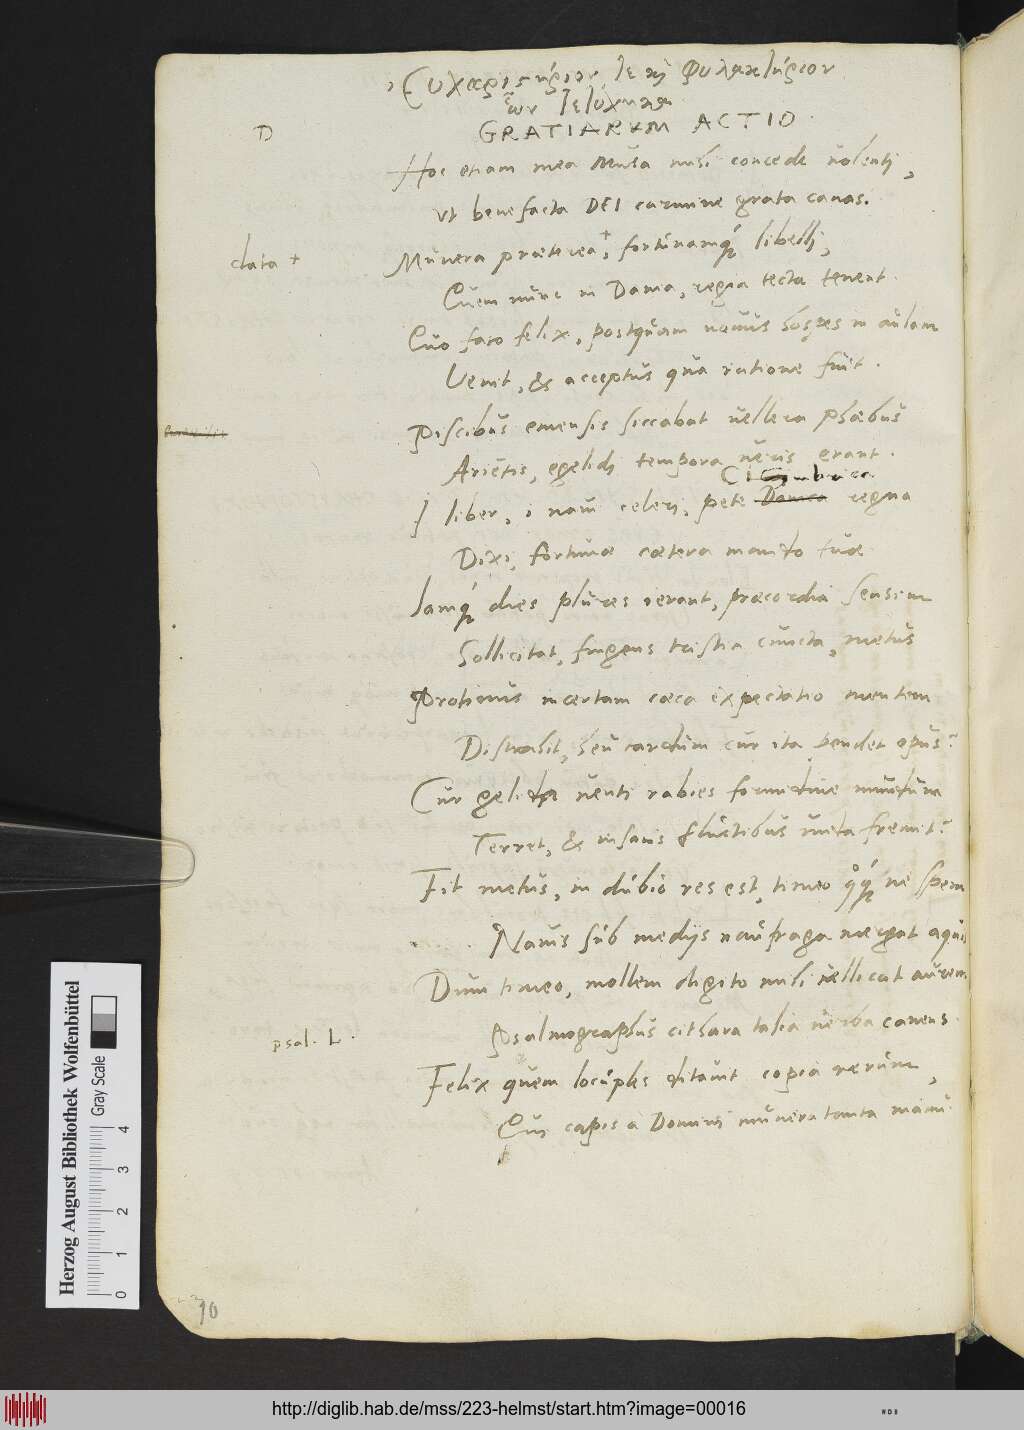 Εὐχαριστήριον τε καὶ φυλακτήριον
ὧν τετύχηκα
GRATIARVM ACTIO
D
Hoc etiam mea Musa mihi concede uolenti,
Vt benefacta DEI carmine grata canas.
Munera præterea +, fortunamq́ libelli,
data +
Quem nunc in Dania, regia tecta tenent.
Quo fato felix, postquam nauis sospes in aulam
Venit, & acceptus qua ratione fuit.
Piscibus emensis siccabat uellera phœbus
Arietis, egelidi tempora ueris erant.
Cimbrica
I liber, i naui celeri, pete Danica regna
Dixi, fortunæ cætera mando tuæ
Iamq́ dies plures ierant, præcordia sensim
Sollicitat, fingens tristia cuncta, metus
Protinus incertam cæca expectatio mentem
Distrahit, seu tardum cur ita pendet opus?
Cur gelida uenti rabies formidine mundum
Terret, & insanis fluctibus unda fremit?
Fit metus, in dubio res est, timeo ne spem
Nauis sub medijs naufraga mergat aquis
Dum timeo, mollem digito mihi uellicat aurem
Psalmographus cithara talia uerba canens.
psal. L.
Felix quem locuples ditauit copia rerum,
Qui capis a Domini munera tanta manu.
10
Herzog August Bibliothek Wolfenbüttel
Gray Scale
0 1 2 3 4
http://diglib.hab.de/mss/223-helmst/start.htm?image=00016